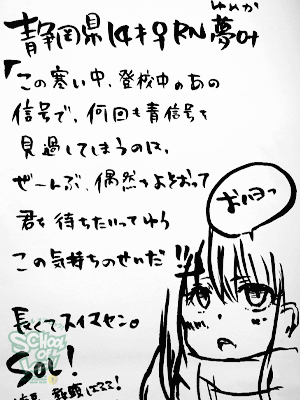 静岡県14才♀RN夢叶
ゆめか
「この寒い中、登校中のあの
信号で、何回も青信号を
見過してしまうのは、
ぜーんぶ、偶然をよそおって
君を待ちたいってゆう
この気持ちのせいだ!!
おハヨっ
長くてスイマセン。
SOL!
SCHOOL OF LOCK!